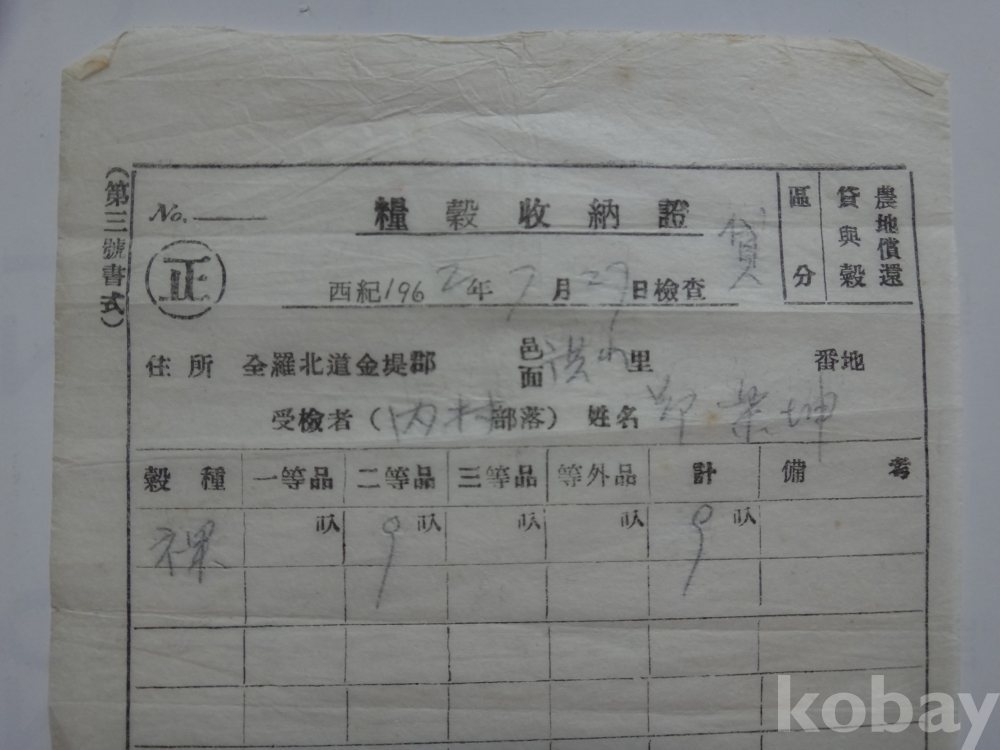 (第三號書式)
No.
糧穀收納證
區分
貸與穀
農地償還
正
貸
西紀1962年7月27日檢查
住所 全羅北道金堤郡 邑面 里 番地
受檢者(內村部落) 姓名
穀種 一等品 二等品 三等品 等外品 計 備考
裸 叺 9叺 叺 叺 9叺
kobay